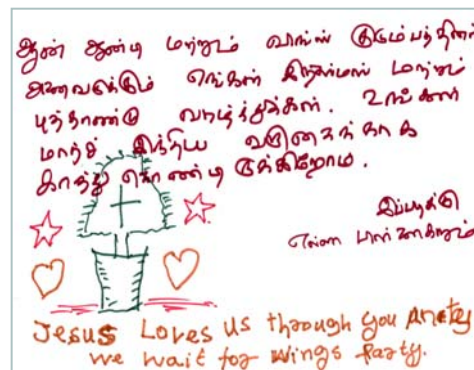 ஆன் ஆன்டி மற்றும் வாங்ஸ் குடும்பத்தினர்
அனைவருக்கும் எங்கள் கிறிஸ்மஸ் மற்றும்
புத்தாண்டு வாழ்த்துக்கள். உங்கள்
மார்ச் இந்திய வருகைக்காக
காத்து கொண்டிருக்கிறோம்.
இப்படிக்கு
எல்லா
Jesus Loves us through you Anety
we wait for wings party.